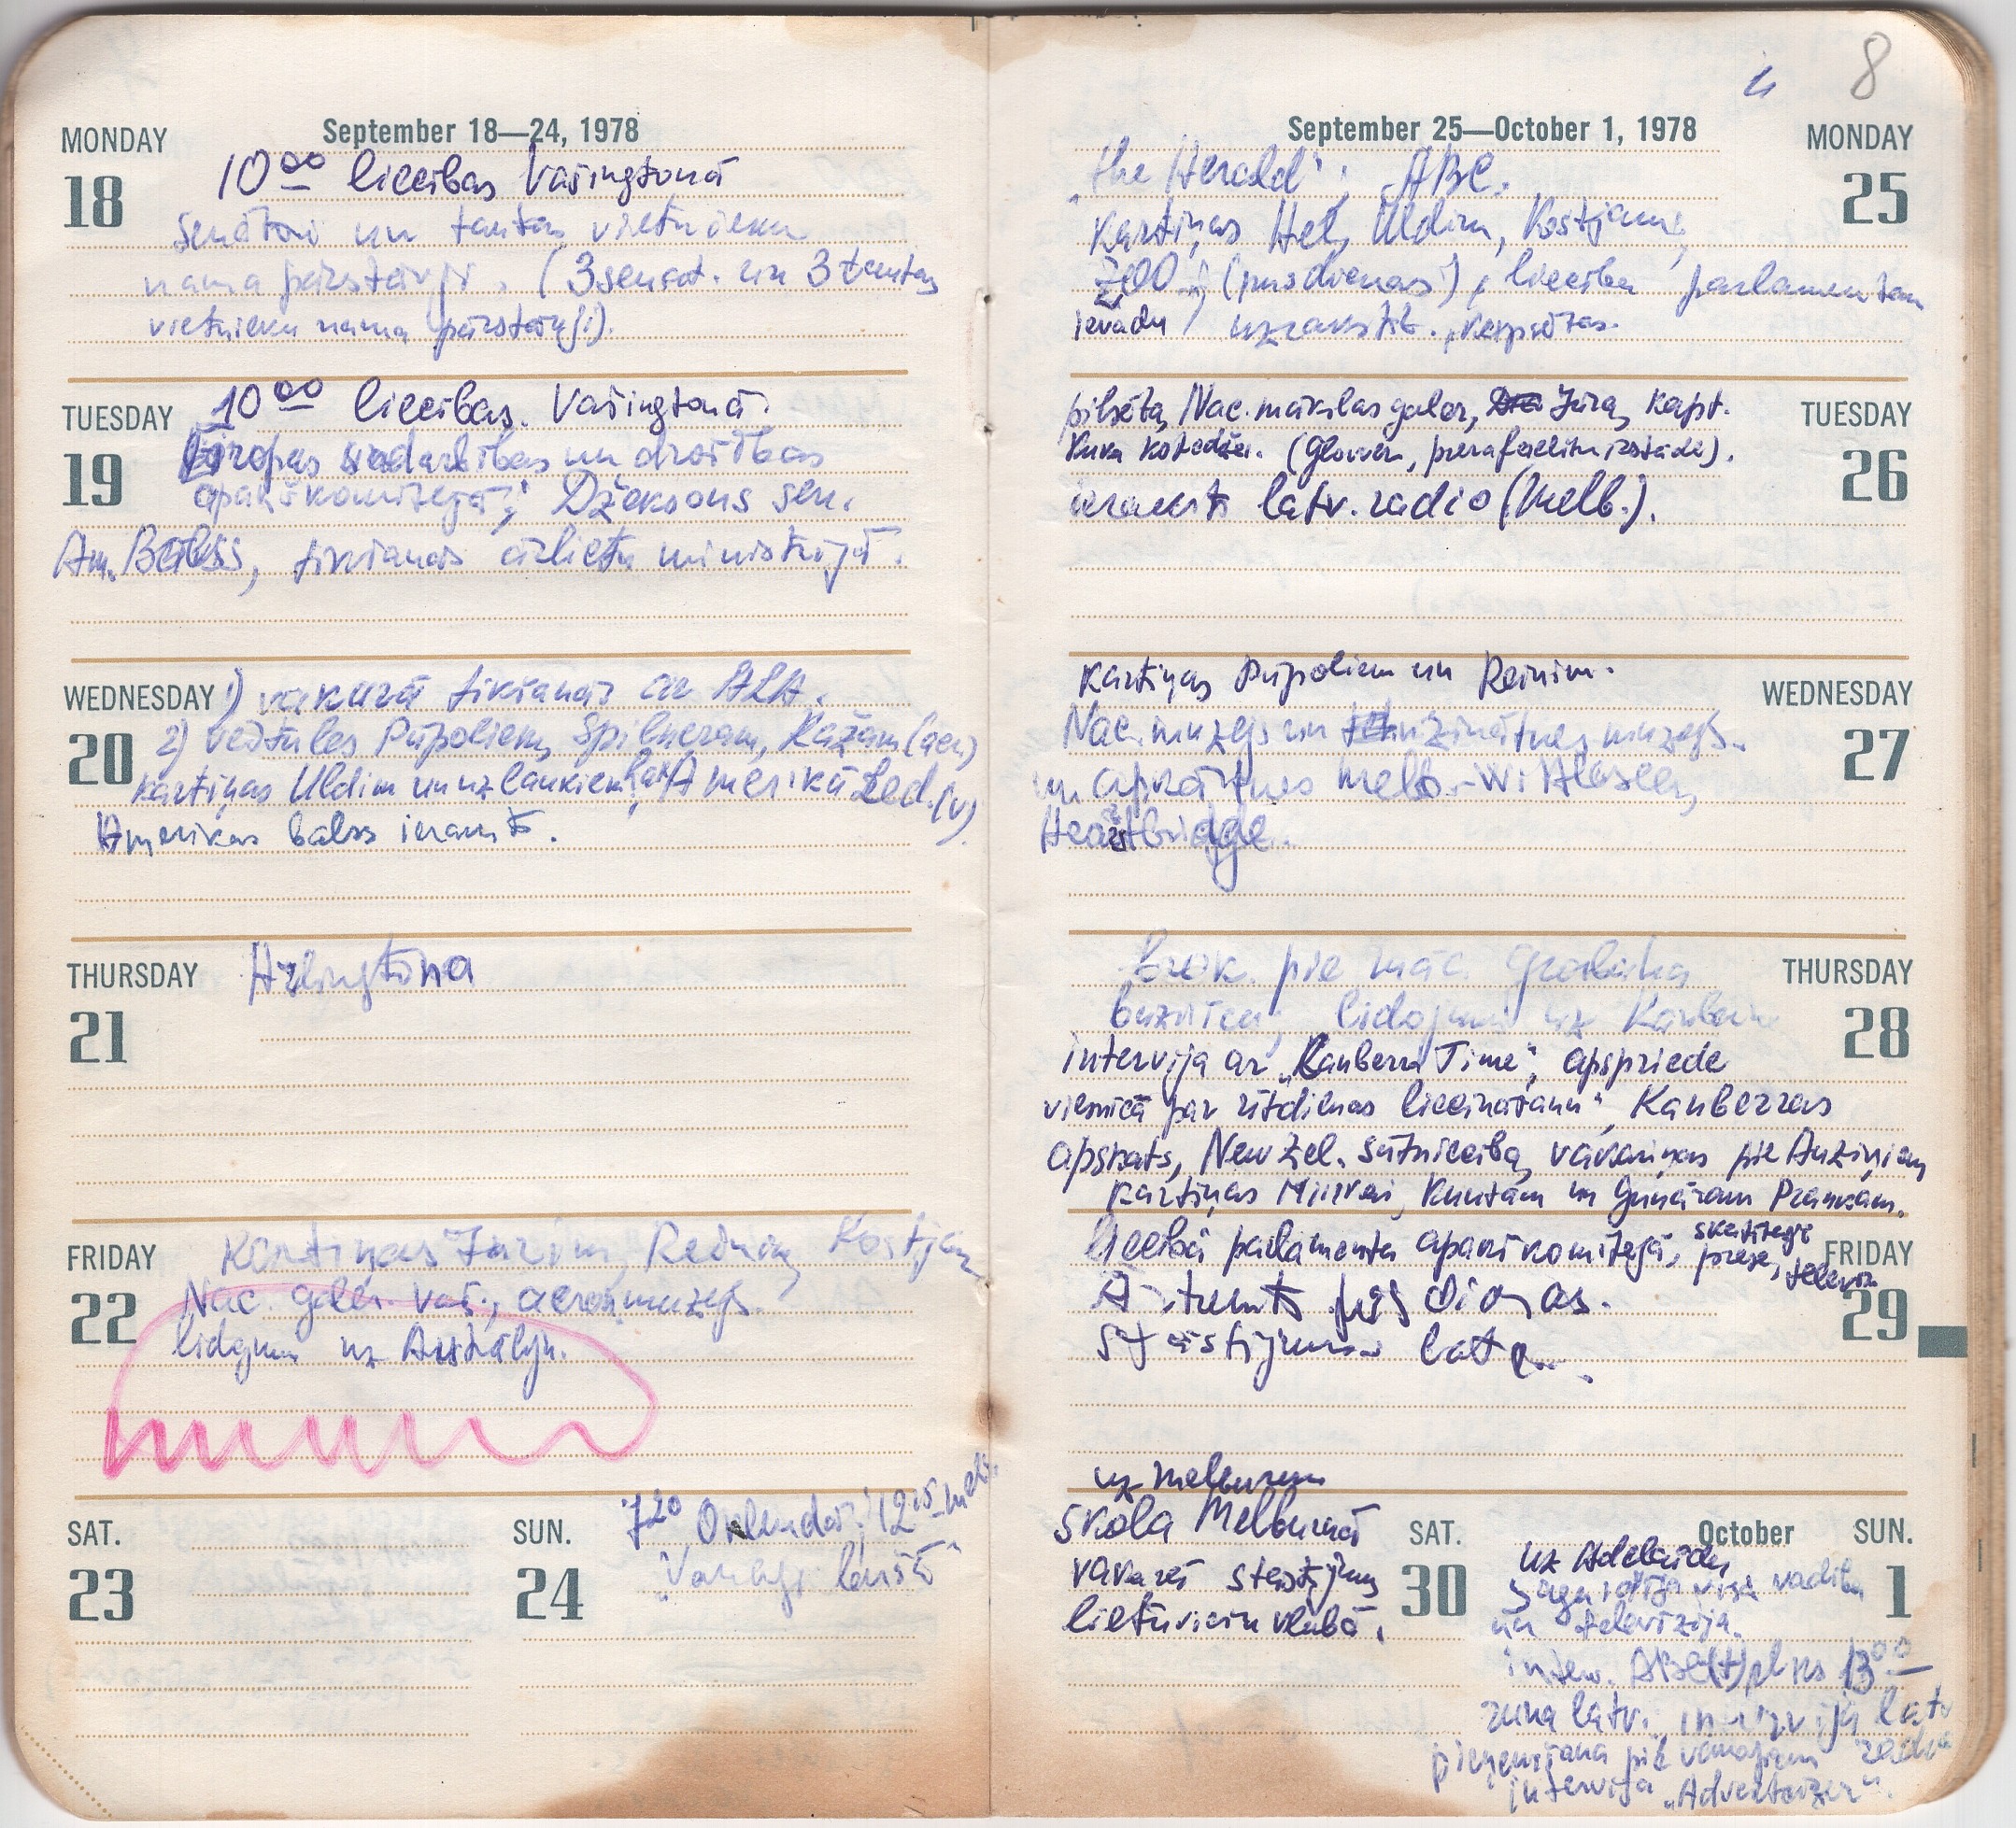 September 18—24, 1978
MONDAY
18
10⁰⁰ liecības Vašingtonā
senātori un tautas vietnieku
nama pārstāvji. (3 senat. un 3 tautas
vietnieku nama pārstāvji).
TUESDAY
19
10⁰⁰ liecības. Vašingtonā.
Eiropas sadarbības un drošības
apakškomitejā; Džeksons sen.
Am. Balss, tikšanās ārlietu ministrijā.
WEDNESDAY
20
1) vakarā tikšanās ar ALA.
2) vēstules Pūpoliem, Spilneram, Kažam (aer)
kartiņas Uldim un uz laukiem, Amerikā Led. (v)
Amerikas balss ieraksts.
THURSDAY
21
Arlingtona
FRIDAY
22
Kartiņas Jurim, Reinim, Kostjam
Nac. galer. vaš., aerosmuzejs.
lidojums uz Austrāliju.
SAT.
23
SUN.
24
7²⁰ Orlendā; 12¹⁵ melb.
"Vanagi" lenšē
8
September 25—October 1, 1978
MONDAY
25
"the Herald"; ABC.
kartiņas Hel, Uldim, Kostjam,
ZOO (pusdienas), liecību parlamentam
ievadu uzrakstīt.
TUESDAY
26
pilsēta, Nac. mākslas galer, Jūra, kapt.
Kuka kotedža. (Glovver, prerafaelītu izstāde).
ieraksts latv. radio (Melb.).
WEDNESDAY
27
kartiņas Pūpoliem un Reinim.
Nac. muzejs un zinātnes muzejs.
un apkārtnes Melb.
THURSDAY
28
brok. pie māc. Grosbaha
baznīca, lidojums uz Kanberu
intervija ar „Canberra Time", apspriede
viesnīcā par rītdienas liecināšanu, Kanberras
apskats, New Zel. sūtniecība, vakariņas pie Anziņiem
kartiņas Miervai, Knutam un Guntāram Prankam.
FRIDAY
29
liecība parlamenta apakškomitejā, skaitītāji
prese, televīz.
stāstījums latv.
SAT.
30
uz Melburnu
skola Melburnā
vakarā stāstījums
lietuviešu klubā.
October
SUN.
1
uz Adelaidu
sagaidīja visa vadība
un televīzija.
interv. ABC(t) plks 13⁰⁰
runa latv. intervija latv
pieņemšana pie radio
intervija „Advertaizer".